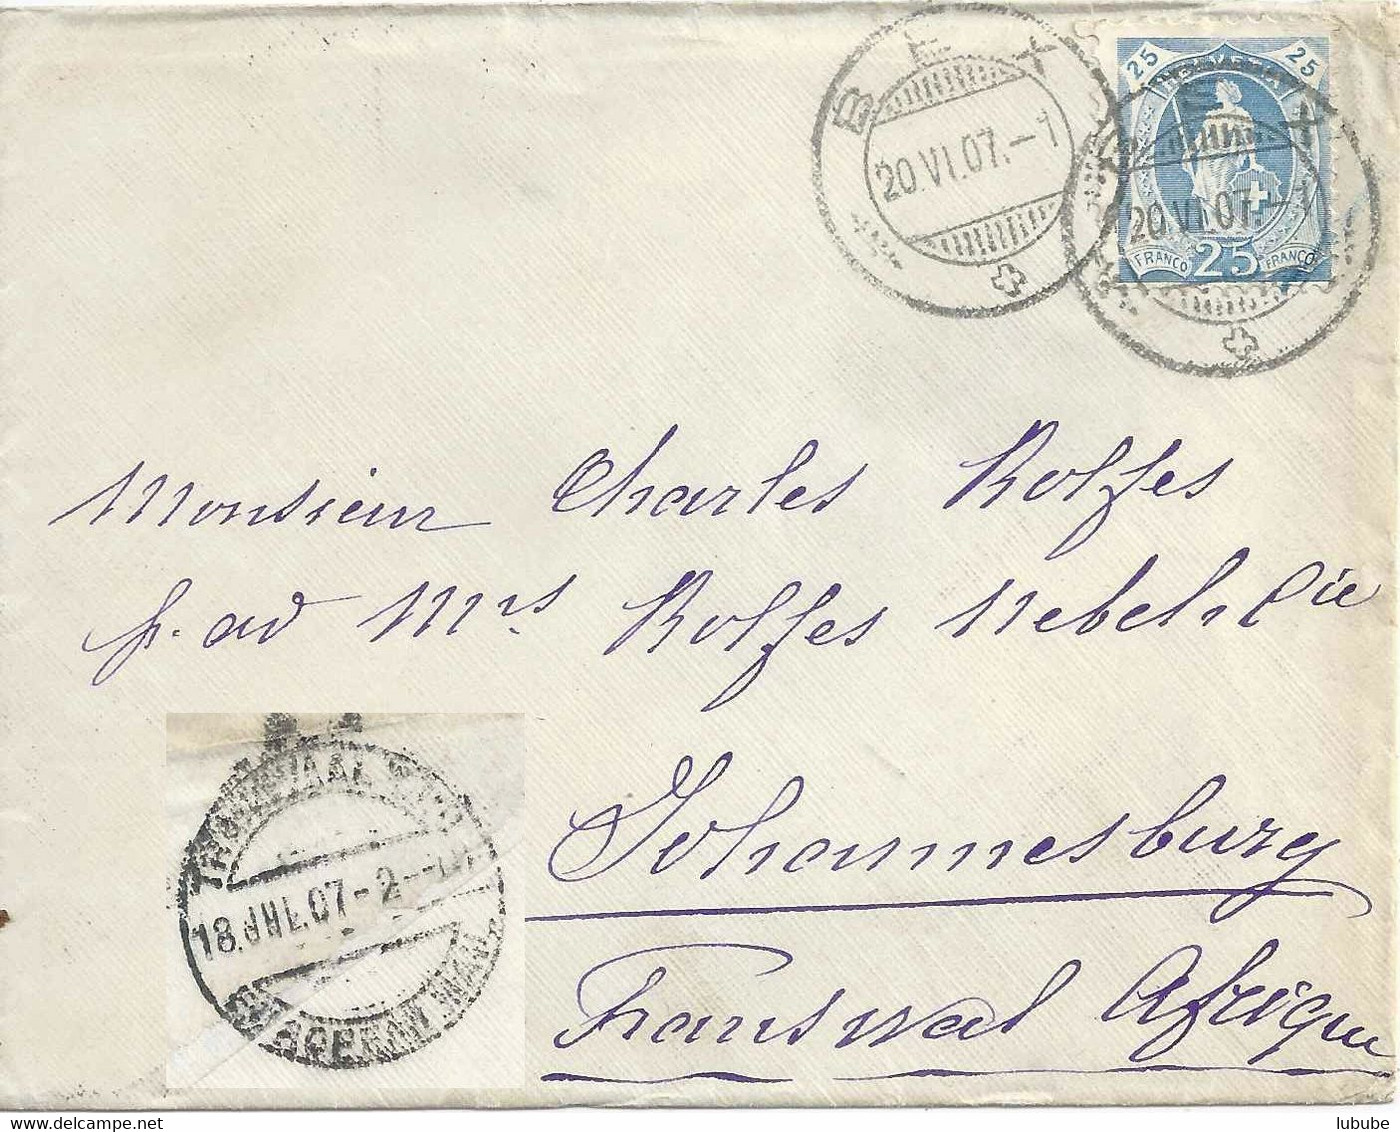 BEX
20.VI.07.-1
25 25
HELVETIA
20.VI.07.-1
FRANCO 25 FRANCO
Monsieur Charles Rolfes
p. ad Mrs Rolfes Nebel & Cie
Johannesburg
Transwaal Afrique
18.JUL.07-2
lubube